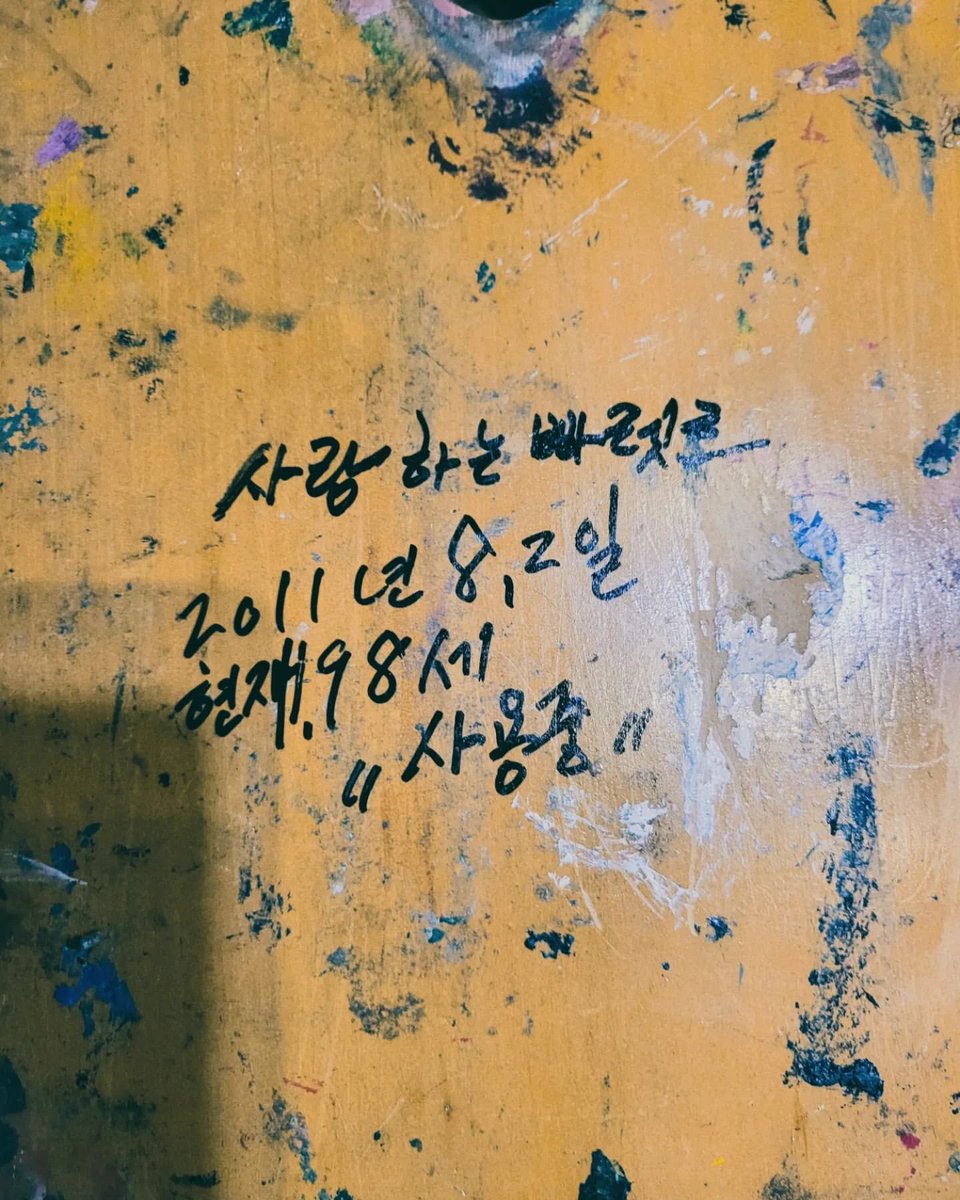 사랑하는 빠렛트
2011년 8.2일
현재.98세
"사용중"